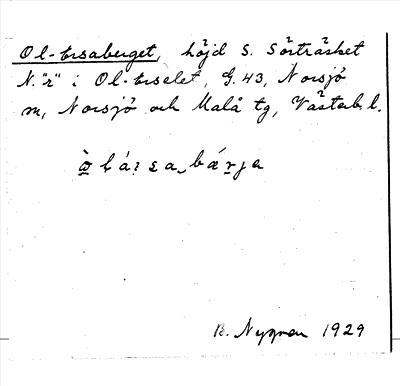 Ol-trsaberget, höjd S. Sörträsket
N. "r" i Ol-trselet, G. 43, Norsjö
m, Norsjö och Malå tg, Västerb. l.
B. Nygren 1929